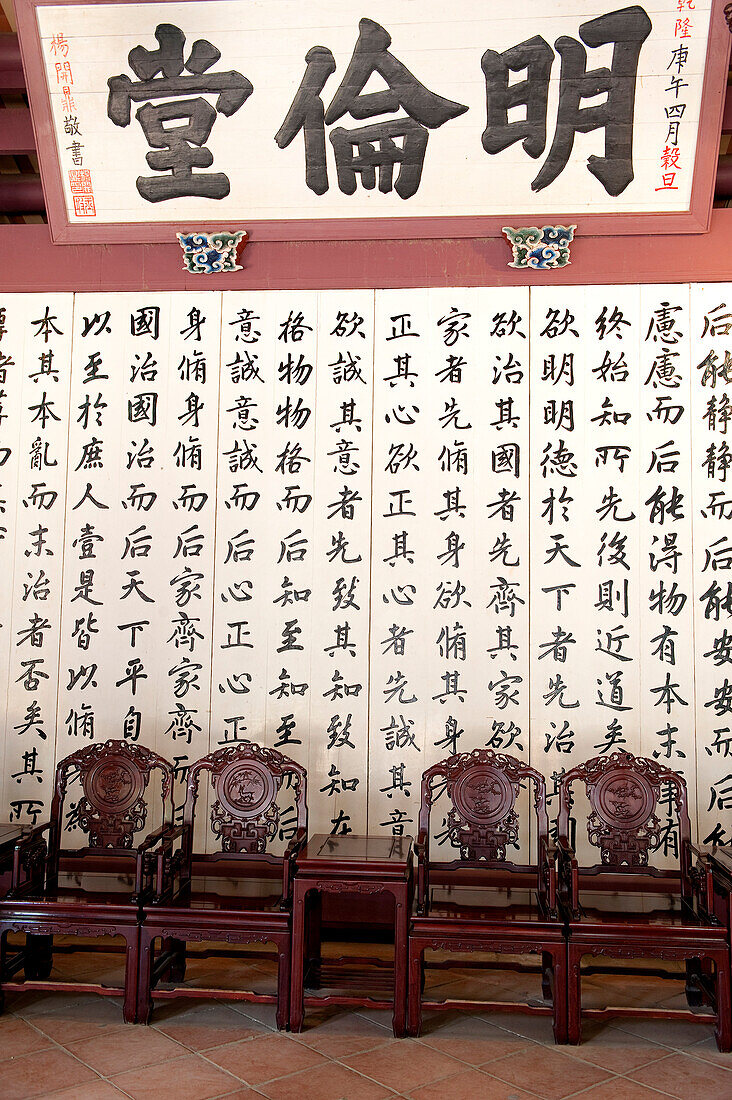 乾隆庚午四月穀旦
明倫堂
楊開鼎敬書
后能靜靜而后能安安而后
慮慮而后能得物有本末事有
終始知所先後則近道矣
欲明明德於天下者先治
欲治其國者先齊其家欲
家者先脩其身欲脩其身
正其心欲正其心者先誠其意
欲誠其意者先致其知致知在
格物物格而后知至知至
意誠意誠而后心正心正
身脩身脩而后家齊家齊而
國治國治而后天下平自
以至於庶人壹是皆以脩
本其本亂而末治者否矣其所